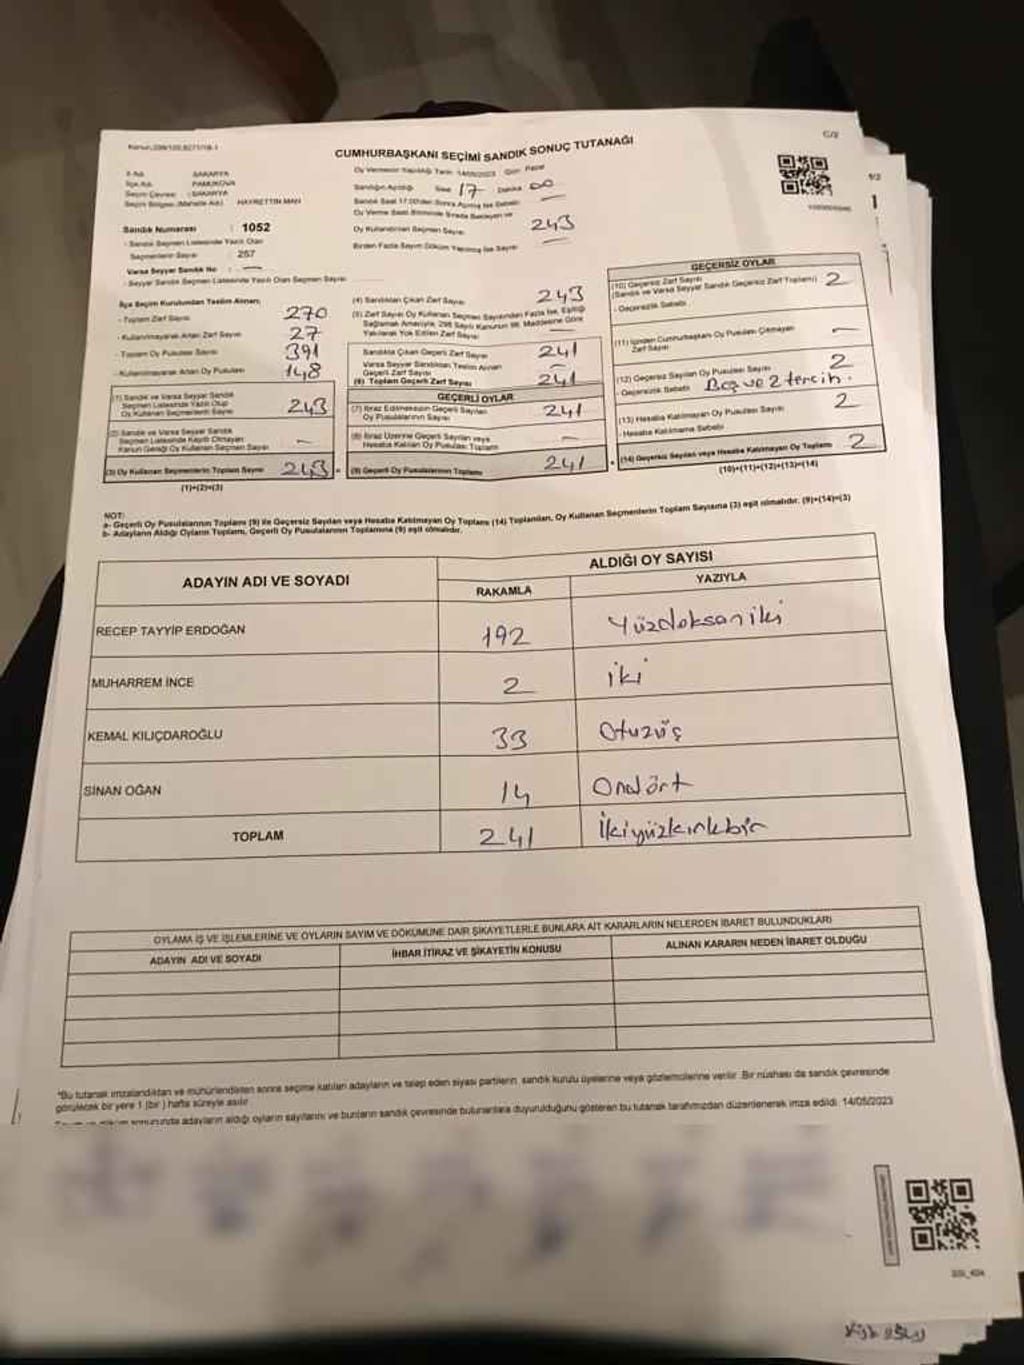 CUMHURBAŞKANI SEÇİMİ SANDIK SONUÇ TUTANAĞI
C/2
İl Adı : SAKARYA
İlçe Adı : PAMUKOVA
Seçim Çevresi : SAKARYA
Seçim Bölgesi (Mahalle Adı) HAYRETTİN MAH
Sandık Numarası : 1052
- Sandık Seçmen Listesinde Yazılı Olan
Seçmenlerin Sayısı 257
Varsa Seyyar Sandık No : —
- Seyyar Sandık Seçmen Listesinde Yazılı Olan Seçmen Sayısı
Oy Vermenin Yapıldığı Tarih: 14/05/2023 Gün: Pazar
Sandığın Açıldığı Saat 17 Dakika 00
Sandık Saat 17.00'den Sonra Açılmış İse Sebebi —
Oy Verme Saati Bitiminde Sırada Bekleyen ve
Oy Kullandırılan Seçmen Sayısı 243
Birden Fazla Sayım Döküm Yapılmış İse Sayısı —
İlçe Seçim Kurulundan Teslim Alınan;
- Toplam Zarf Sayısı 270
- Kullanılmayarak Artan Zarf Sayısı 27
- Toplam Oy Pusulası Sayısı 391
- Kullanılmayarak Artan Oy Pusulası 148
(1) Sandık ve Varsa Seyyar Sandık
Seçmen Listesinde Yazılı Olup
Oy Kullanan Seçmenlerin Sayısı 243
(2) Sandık ve Varsa Seyyar Sandık
Seçmen Listesinde Kayıtlı Olmayan
Kanun Gereği Oy Kullanan Seçmen Sayısı —
(3) Oy Kullanan Seçmenlerin Toplam Sayısı 243
(1)+(2)=(3)
(4) Sandıktan Çıkan Zarf Sayısı 243
(5) Zarf Sayısı Oy Kullanan Seçmen Sayısından Fazla İse, Eşitliği
Sağlamak Amacıyla, 298 Sayılı Kanunun 98. Maddesine Göre
Yakılarak Yok Edilen Zarf Sayısı —
Sandıkta Çıkan Geçerli Zarf Sayısı 241
Varsa Seyyar Sandıktan Teslim Alınan
Geçerli Zarf Sayısı —
(6) Toplam Geçerli Zarf Sayısı 241
GEÇERLİ OYLAR
(7) İtiraz Edilmeksizin Geçerli Sayılan
Oy Pusulalarının Sayısı 241
(8) İtiraz Üzerine Geçerli Sayılan veya
Hesaba Katılan Oy Pusulası Toplamı —
(9) Geçerli Oy Pusulalarının Toplamı 241
GEÇERSİZ OYLAR
(10) Geçersiz Zarf Sayısı
(Sandık ve Varsa Seyyar Sandık Geçersiz Zarf Toplamı) 2
- Geçersizlik Sebebi
(11) İçinden Cumhurbaşkanı Oy Pusulası Çıkmayan
Zarf Sayısı —
(12) Geçersiz Sayılan Oy Pusulası Sayısı 2
- Geçersizlik Sebebi Boş ve 2 tercih.
(13) Hesaba Katılmayan Oy Pusulası Sayısı 2
- Hesaba Katılmama Sebebi
(14) Geçersiz Sayılan veya Hesaba Katılmayan Oy Toplamı 2
(10)+(11)+(12)+(13)=(14)
NOT:
a- Geçerli Oy Pusulalarının Toplamı (9) ile Geçersiz Sayılan veya Hesaba Katılmayan Oy Toplamı (14) Toplamları, Oy Kullanan Seçmenlerin Toplam Sayısına (3) eşit olmalıdır. (9)+(14)=(3)
b- Adayların Aldığı Oyların Toplamı, Geçerli Oy Pusulalarının Toplamına (9) eşit olmalıdır.
ADAYIN ADI VE SOYADI
ALDIĞI OY SAYISI
RAKAMLA YAZIYLA
RECEP TAYYİP ERDOĞAN 192 Yüzdoksaniki
MUHARREM İNCE 2 iki
KEMAL KILIÇDAROĞLU 33 Otuzüç
SİNAN OĞAN 14 Ondört
TOPLAM 241 İkiyüzkırkbir
OYLAMA İŞ VE İŞLEMLERİNE VE OYLARIN SAYIM VE DÖKÜMÜNE DAİR ŞİKAYETLERLE BUNLARA AİT KARARLARIN NELERDEN İBARET BULUNDUKLARI
ADAYIN ADI VE SOYADI İHBAR İTİRAZ VE ŞİKAYETİN KONUSU ALINAN KARARIN NEDEN İBARET OLDUĞU
*Bu tutanak imzalandıktan ve mühürlendikten sonra seçime katılan adayların ve talep eden siyasi partilerin, sandık kurulu üyelerine veya gözlemcilerine verilir. Bir nüshası da sandık çevresinde
görülecek bir yere 1 (bir) hafta süreyle asılır.
döküm sonucunda adayların aldığı oyların sayılarını ve bunların sandık çevresinde bulunanlara duyurulduğunu gösteren bu tutanak tarafımızdan düzenlenerek imza edildi. 14/05/2023